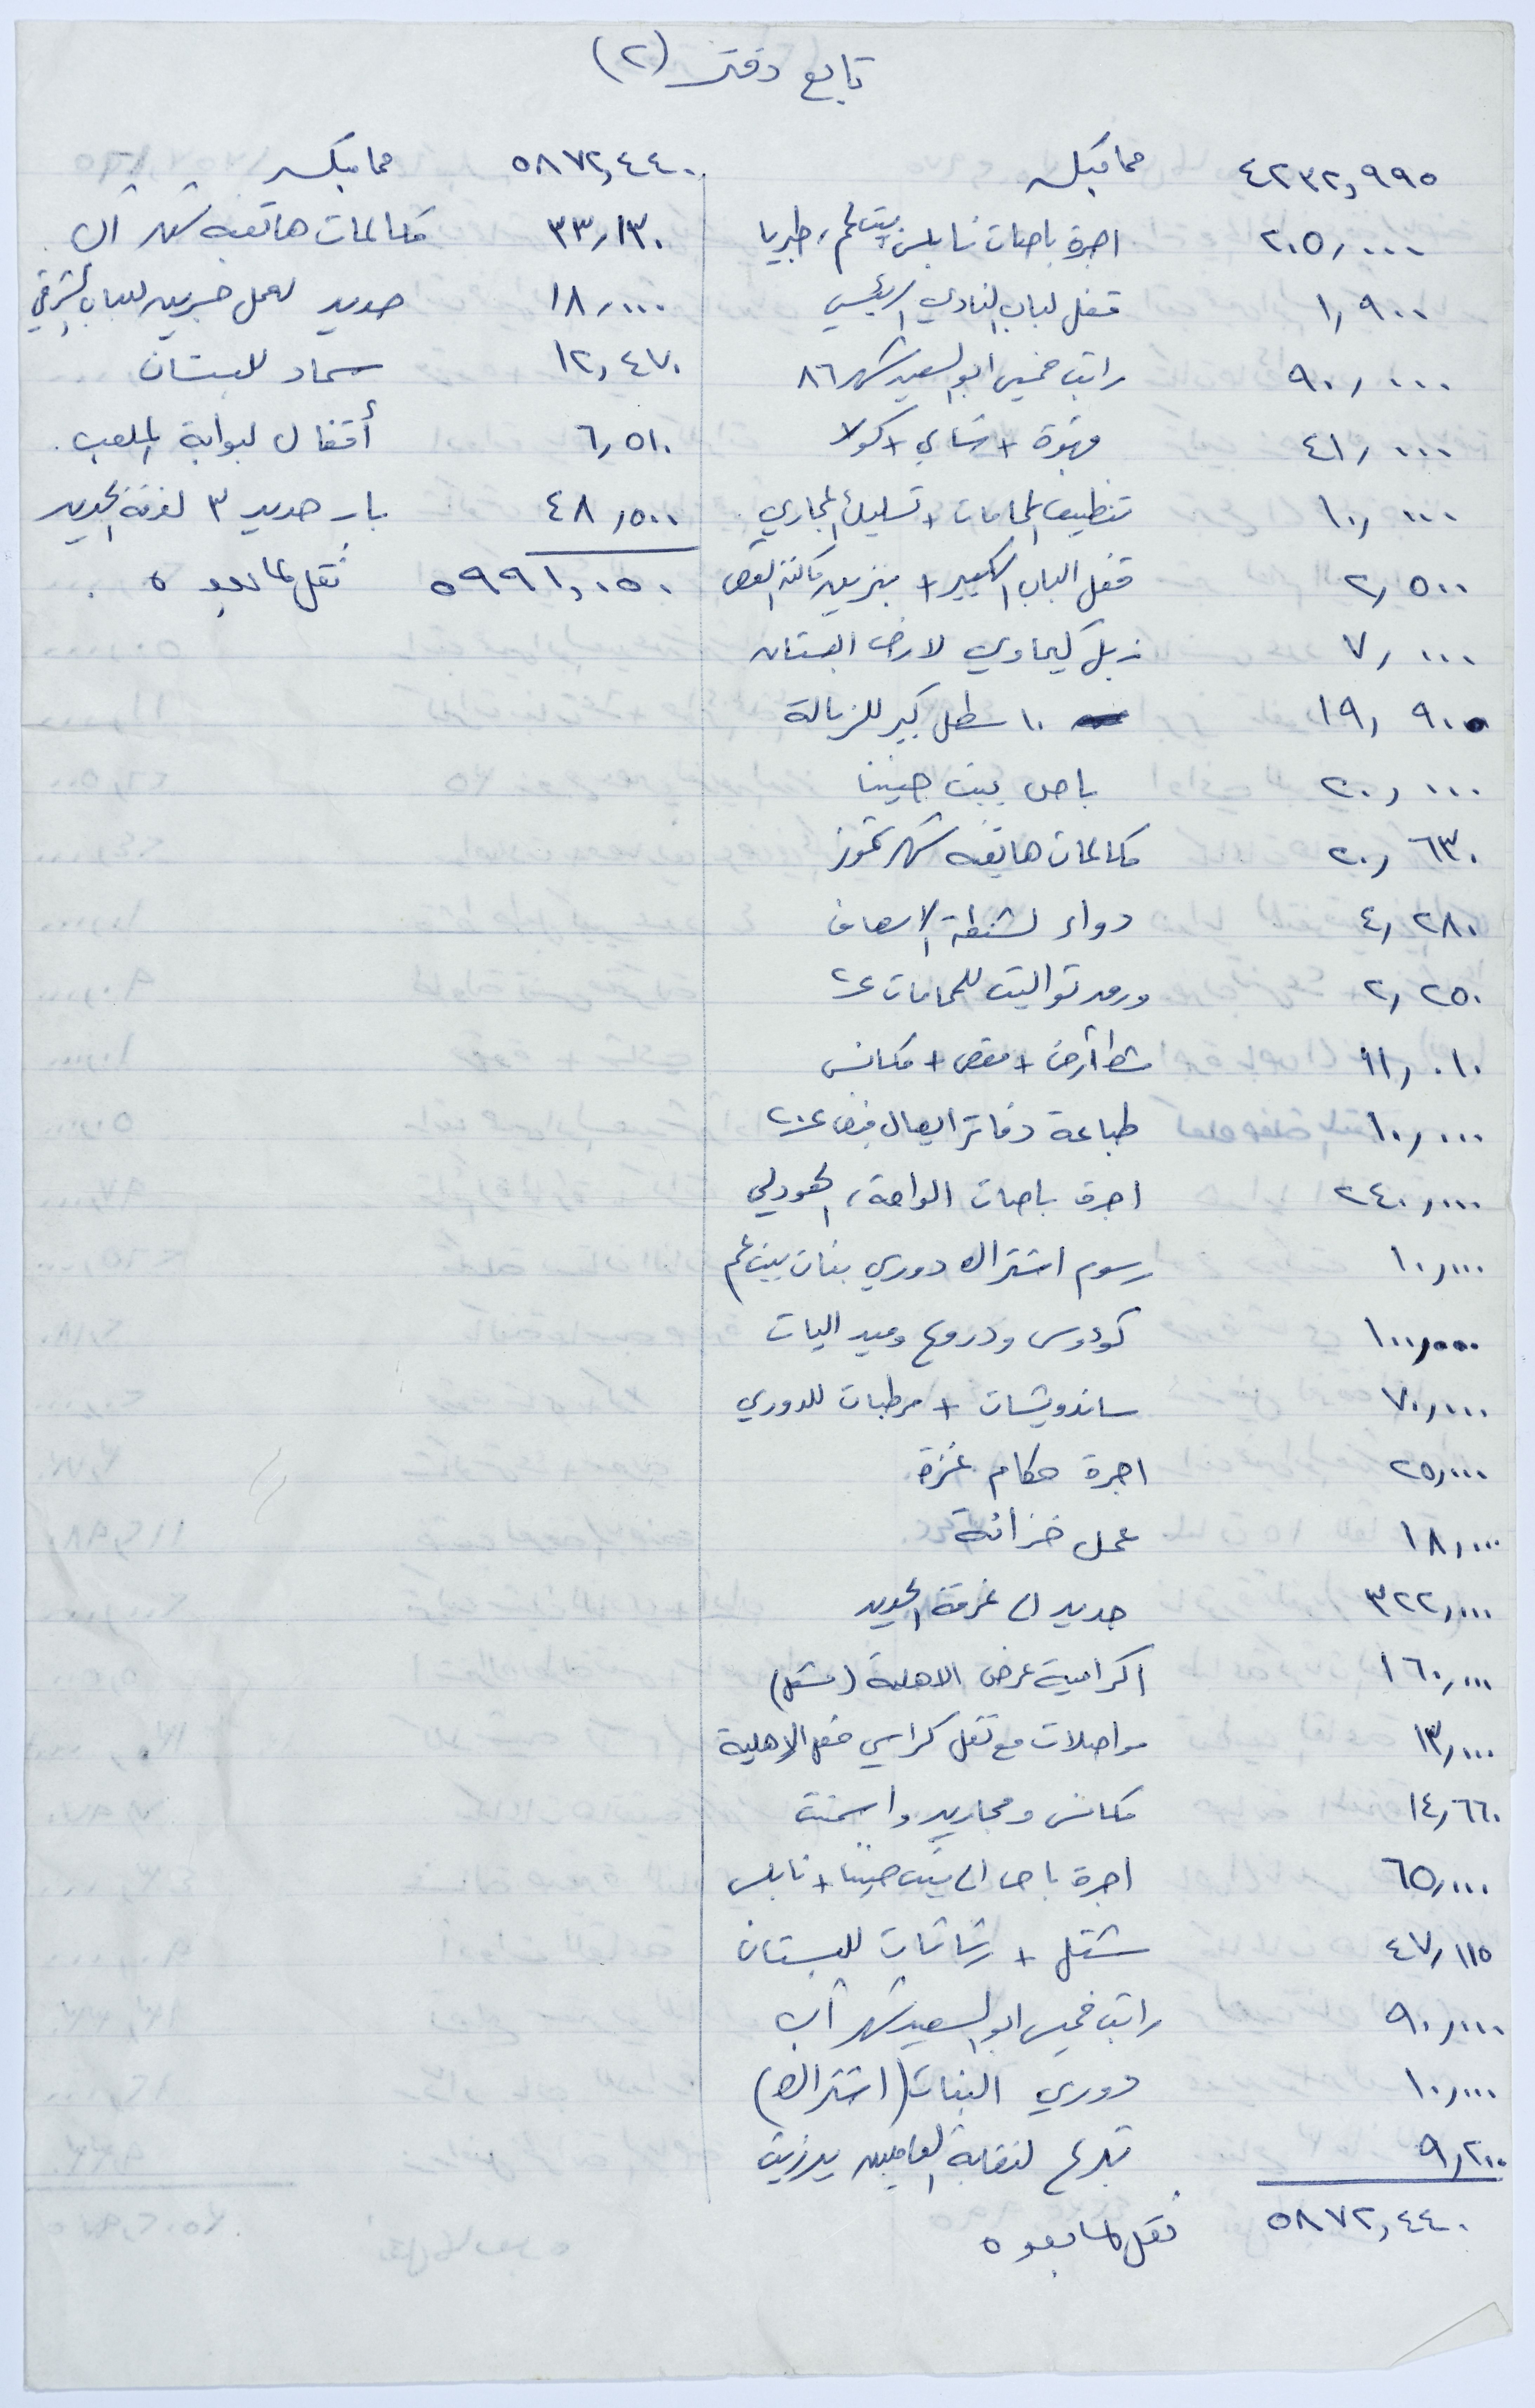 تابع دفتر (٢)
٤٢٣٢,٩٩٥ مما قبله
٢٠٥,٠٠٠ اجرة باصات نابلس، بيت لحم، طبريا
١,٩٠٠ قفل لباب النادي الرئيسي
٩٠,٠٠٠ راتب خميس ابو السعيد شهر ٨٦
٤١,٠٠٠ قهوة + شاي + كولا
١٠,٠٠٠ تنظيف الحمامات + تسليك المجاري
٢,٥٠٠ قفل الباب الكبير + بنزين ماكنة القص
٧,٠٠٠ زبل كيماوي لارض البستان
١٩,٩٠٠ ١٠ سطل كبير للزبالة
٢٠,٠٠٠ باص بيت حنينا
٢٠,٦٣٠ مكالمات هاتفية شهر تموز
٤,٢٨٠ دواء لشنطة الاسعاف
٢,٢٥٠ ورق تواليت للحمامات
١١,٠١٠ شط أرض + مقص + مكانس
١٠,٠٠٠ طباعة دفاتر ايصال قبض
٢٤٠,٠٠٠ اجرة باصات الواحة،
١٠,٠٠٠ رسوم اشتراك دوري بنات بيت لحم
١٠٠,٠٠٠ كؤوس ودروع وميداليات
٧٠,٠٠٠ ساندويشات + مرطبات للدوري
٢٥,٠٠٠ اجرة حكام غزة
١٨,٠٠٠ عمل خزانة
٣٢٢,٠٠٠ حديد الى غرفة الحديد
١٦٠,٠٠٠ اكرامية عرض الاهلية
١٣,٠٠٠ مواصلات مع نقل كراسي حفل الاهلية
١٤,٦٦٠ مكانس ومجاريد واسمنت
٦٥,٠٠٠ اجرة باص الى بيت حنينا + نابلس
٤٧,١١٥ شتل + رشاشات للبستان
٩٠,٠٠٠ راتب خميس ابو السعيد شهر آب
١٠,٠٠٠ دوري البنات (اشتراك)
٩,٢٠٠ تبرع لنقابة العاملين بيرزيت
٥٨٧٢,٤٤٠ نقل لما بعده
٥٨٧٢,٤٤٠ مما قبله
٣٣,١٣٠ مكالمات هاتفية شهر آب
١٨,٠٠٠ حديد لعمل للباب الشرقي
١٢,٤٧٠ سماد للبستان
٦,٥١٠ أقفال لبوابة الملعب.
٤٨,٥٠٠ بار حديد ٣ لغرفة الحديد
٥٩٩١,٠٥٠ نقل لما بعده.